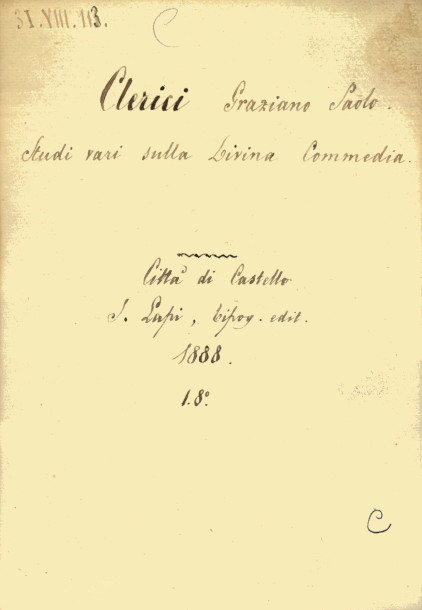 31.VIII.113.
C
Clerici Graziano Paolo.
Studi vari sulla Divina Commedia.
Città di Castello
S. Lapi, tipog. edit.
1888.
1.8º
C